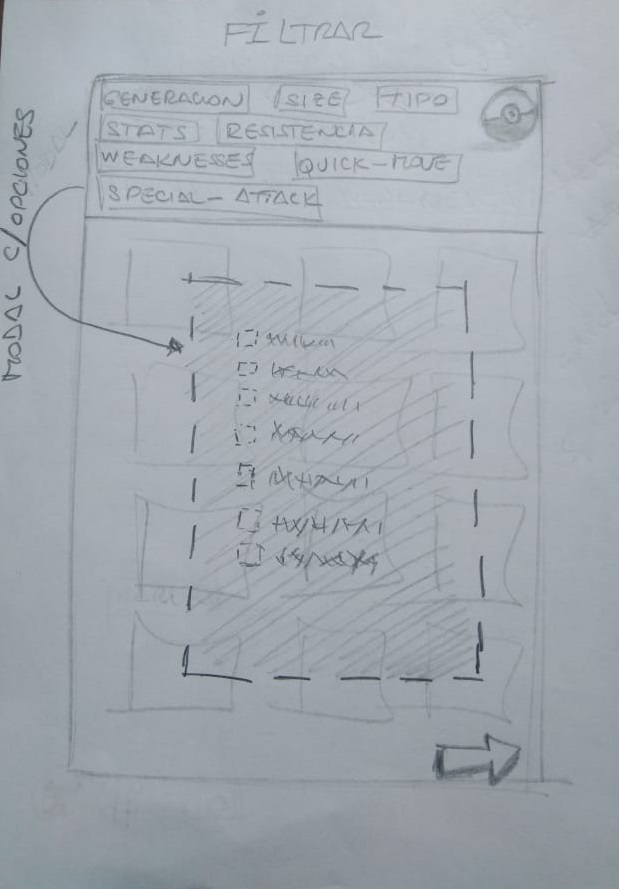 FILTRAR
GENERACION SIZE TIPO
STATS RESISTENCIA
WEAKNESSES QUICK-MOVE
SPECIAL-ATTACK
MODAL C/OPCIONES